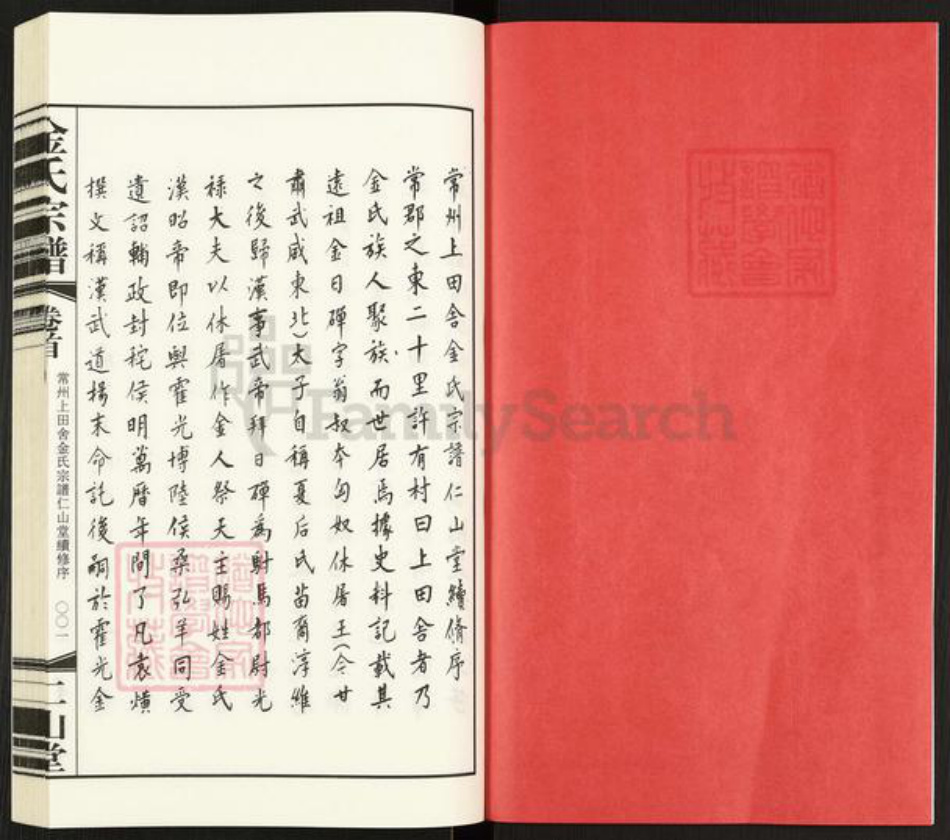 常州上田舍金氏宗譜仁山堂續脩序
常郡之東二十里許有村曰上田舍者乃
金氏族人聚族而世居焉據史料記載其
遠祖金日磾字翁叔本匈奴休屠王(今甘
肅武威東北)太子自稱夏后氏苗裔淳維
之後歸漢事武帝拜日磾為駙馬都尉光
祿大夫以休屠作金人祭天主賜姓金氏
漢昭帝即位與霍光博陸侯桑弘羊同受
遺詔輔政封秺侯明萬曆年間了凡袁熿
撰文稱漢武道揚末命託後嗣於霍光金
金氏宗譜
卷首
常州上田舍金氏宗譜仁山堂續修序
〇〇一
仁山堂
FamilySearch